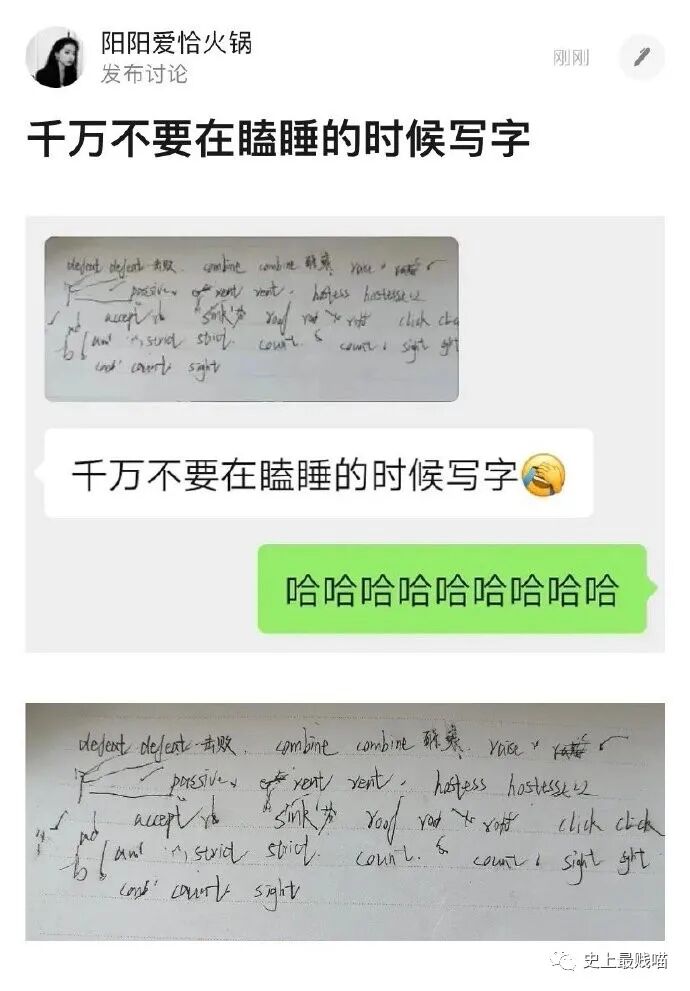 阳阳爱恰火锅
刚刚
发布讨论
千万不要在瞌睡的时候写字
defeat defeat 击败 combine combine 联 raise
passive, rent rent. hostess hostesse
accept sink roof click click
strict strict. count. count. sight ght
count sight
千万不要在瞌睡的时候写字🤣
哈哈哈哈哈哈哈哈哈
defeat defeat 击败. combine combine 联 raise
passive, rent rent. hostess hostesse
accept sink roof click click
strict strict. count. count. sight ght
count sight
史上最贱喵